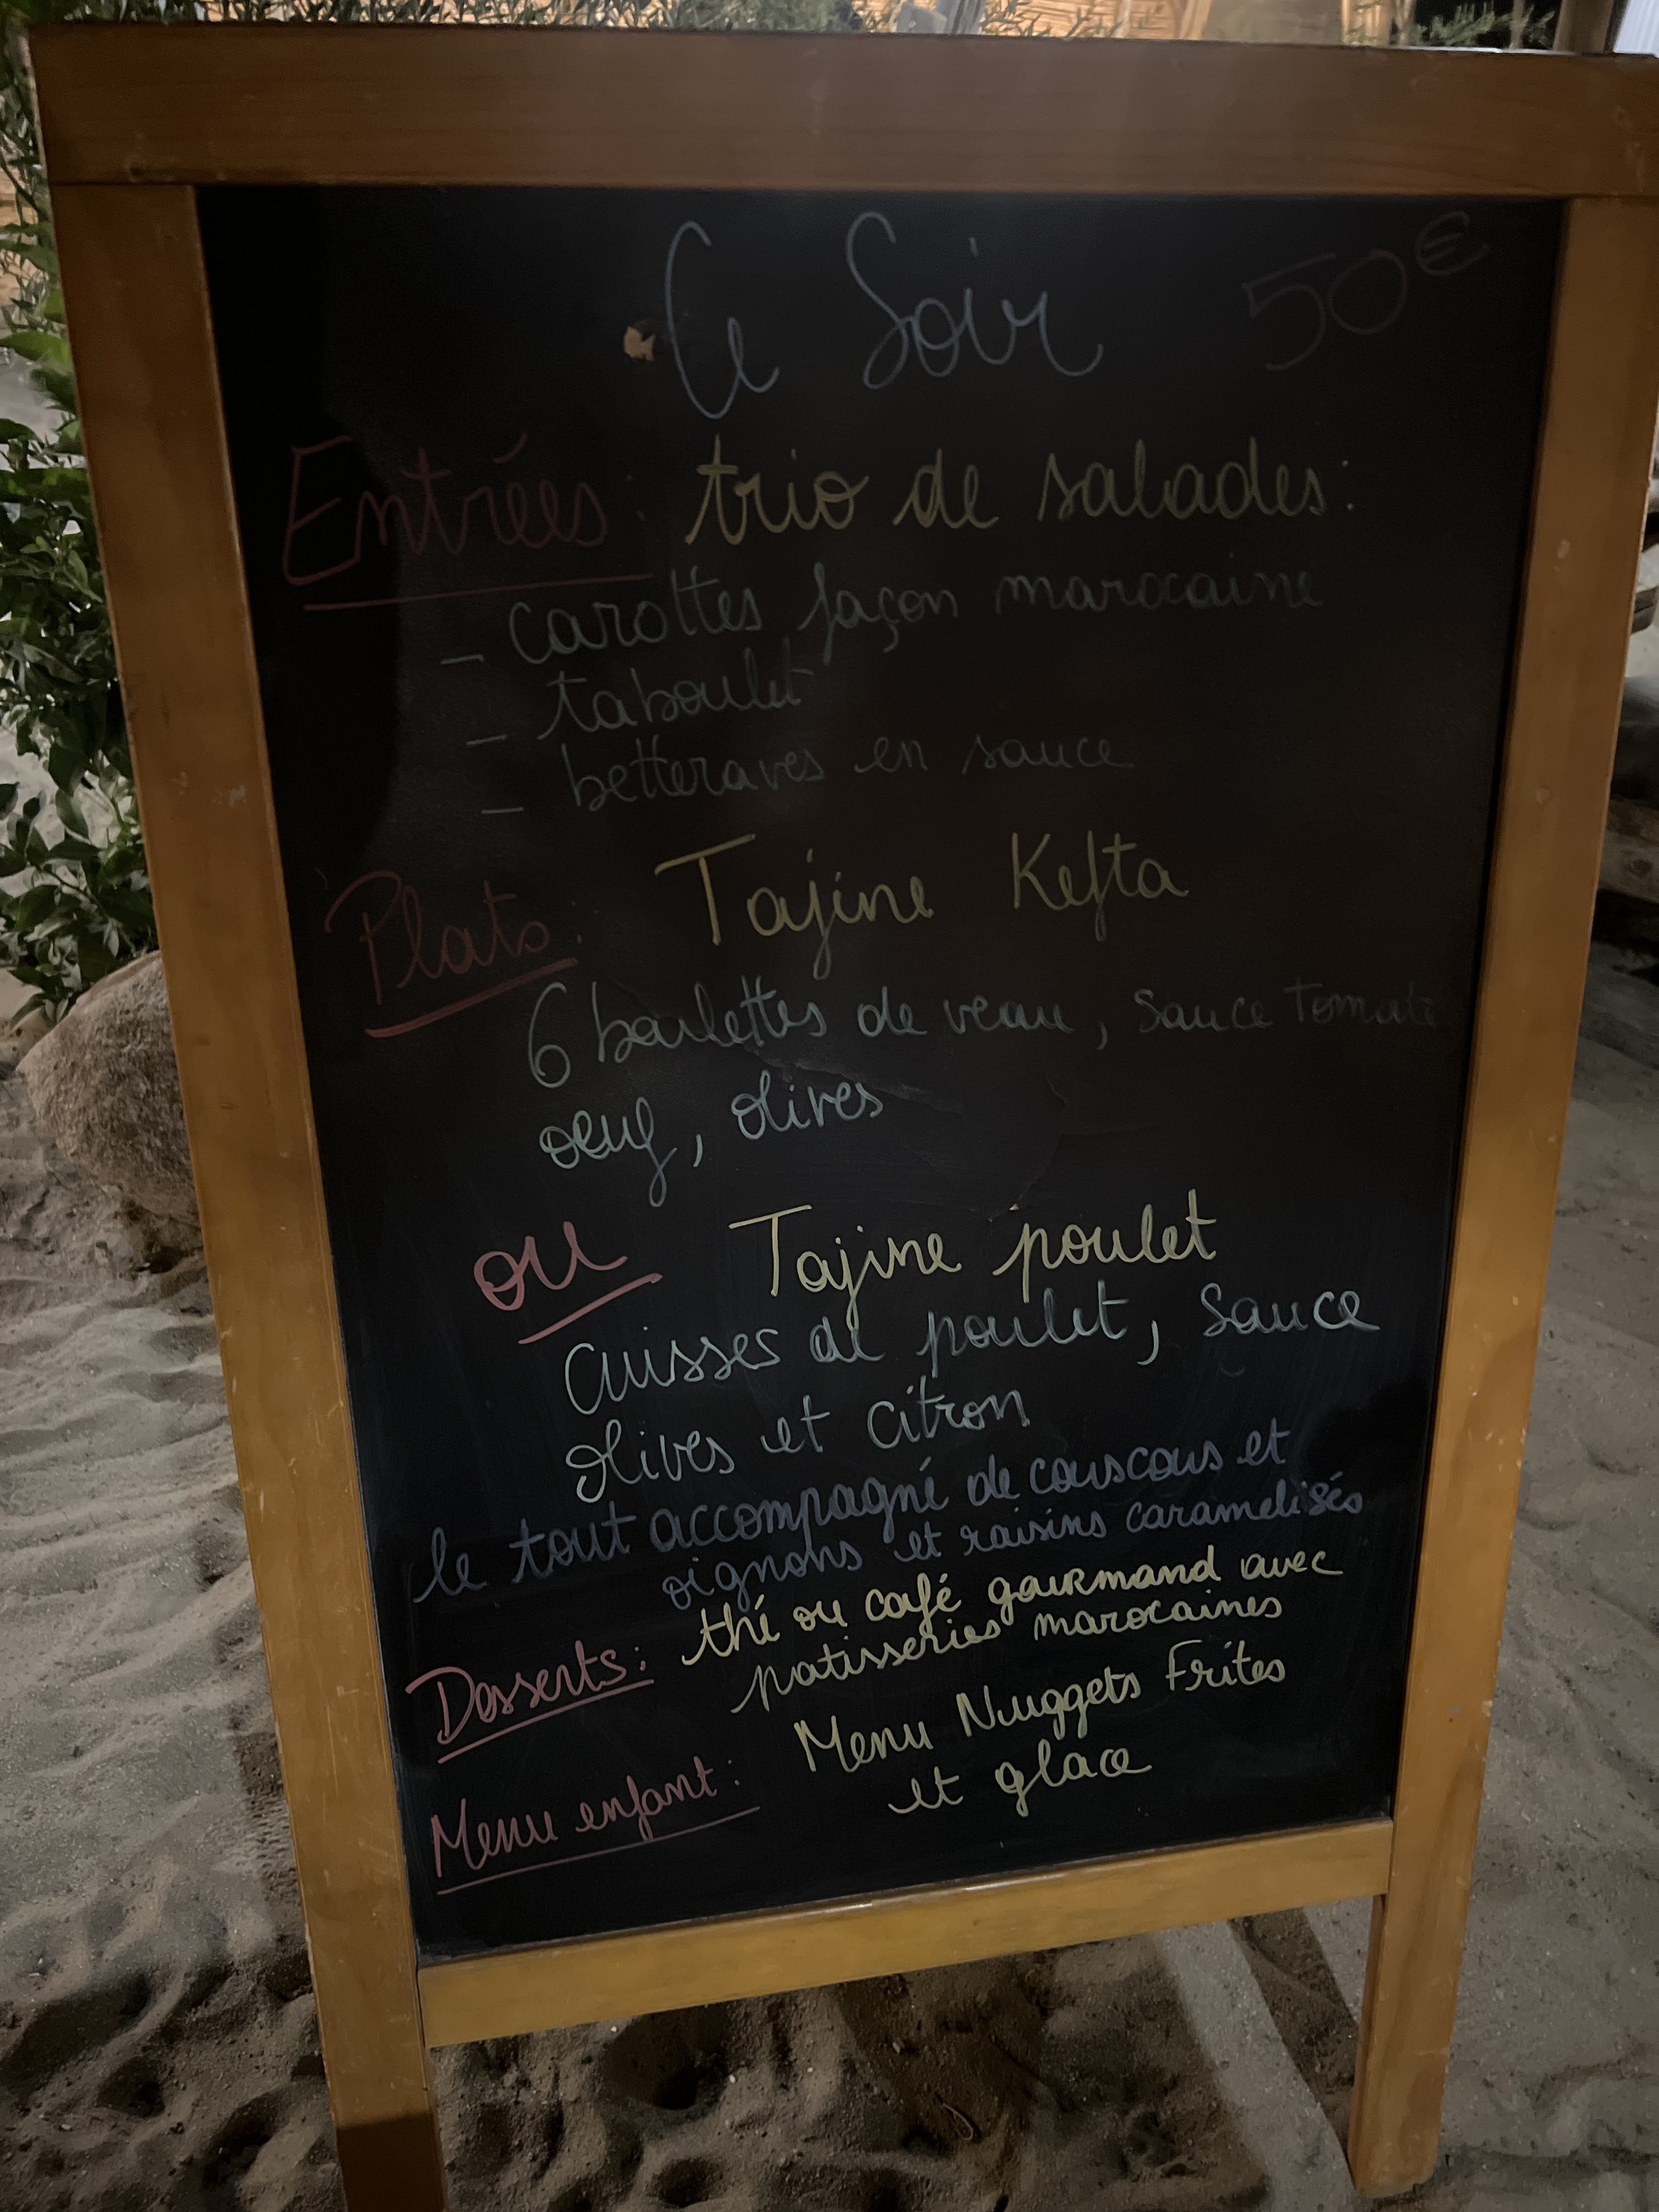 Ce Soir 50€
Entrées : trio de salades :
- carottes façon marocaine
- taboulet
- betteraves en sauce
Plats : Tajine Kefta
6 boulettes de veau, sauce tomate
oeuf, olives
ou Tajine poulet
cuisses de poulet, sauce
olives et citron
le tout accompagné de couscous et
oignons et raisins caramelisés
Desserts : thé ou café gourmand avec
patisseries marocaines
Menu enfant : Menu Nuggets Frites
et glace